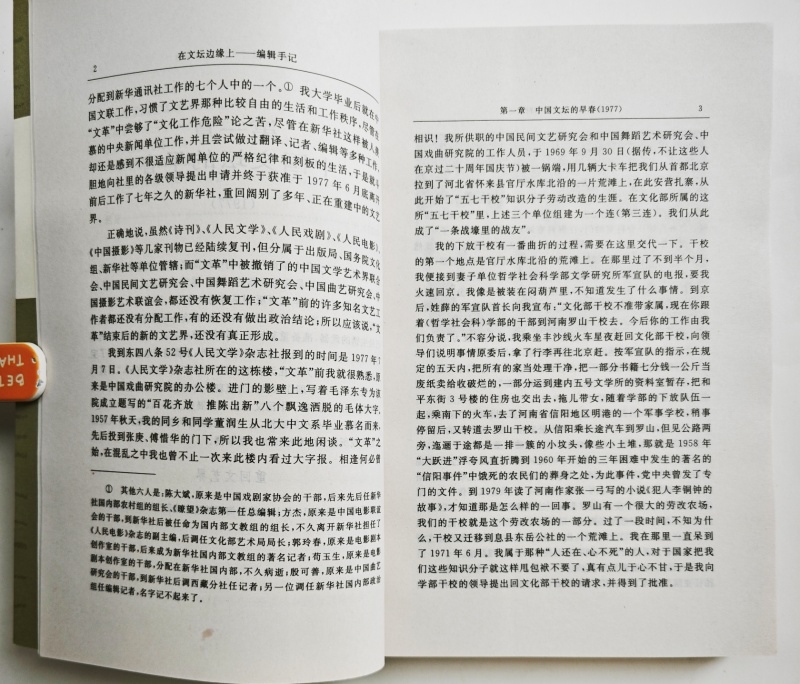 2
在文坛边缘上——编辑手记
分配到新华通讯社工作的七个人中的一个。① 我大学毕业后就在中
国文联工作,习惯了文艺界那种比较自由的生活和工作秩序,尽管在
“文革”中尝够了“文化工作危险”论之苦,尽管在新华社这样被人羡
慕的中央新闻单位工作,并且尝试做过翻译、记者、编辑等多种工作,
却还是感到不很适应新闻单位的严格纪律和刻板的生活,于是就斗
胆地向社里的各级领导提出申请并终于获准于 1977 年 6 月底离开
前后工作了七年之久的新华社,重回阔别了多年、正在重建中的文艺
界。
正确地说,虽然《诗刊》、《人民文学》、《人民戏剧》、《人民电影》、
《中国摄影》等几家刊物已经陆续复刊,但分属于出版局、国务院文化
组、新华社等单位管辖;而“文革”中被撤销了的中国文学艺术界联合
会、中国民间文艺研究会、中国舞蹈艺术研究会、中国曲艺研究会、中
国摄影艺术联谊会,都还没有恢复工作;“文革”前的许多知名文艺工
作者都还没有分配工作,有的还没有做出政治结论;所以应该说,“文
革”结束后的新的文艺界,还没有真正形成。
我到东四八条 52 号《人民文学》杂志社报到的时间是 1977 年 7
月 7 日。《人民文学》杂志社所在的这栋楼,“文革”前我就很熟悉,原
来是中国戏曲研究院的办公楼。进门的影壁上,写着毛泽东专为该
院成立题写的“百花齐放 推陈出新”八个飘逸洒脱的毛体大字。
1957 年秋天,我的同乡和同学董润生从北大中文系毕业慕名而来,
先后投到张庚、傅惜华的门下,所以我也常来此地闲谈。“文革”之
始,在混乱之中我也曾不止一次来此楼内看过大字报。相逢何必曾
① 其他六人是:陈大斌,原来是中国戏剧家协会的干部,后来先后任新华
社国内部农村组的组长、《瞭望》杂志第一任总编辑;方杰,原来是中国电影联谊
会的干部,到新华社后被任命为国内部文教组的组长,不久离开新华社担任了
《人民电影》杂志的副主编,后调任文化部艺术局局长;郭玲春,原来是电影剧本
创作室的干部,后来成为新华社国内部文教组的著名记者;苟玉生,原来是电影
剧本创作室的干部,分配在新华社国内部,不久病逝;殷可善,原来是中国曲艺
研究会的干部,到新华社后调西藏分社任记者;另一位调任新华社国内部政治
组任编辑记者,名字记不起来了。
第一章 中国文坛的早春(1977)
3
相识!我所供职的中国民间文艺研究会和中国舞蹈艺术研究会、中
国戏曲研究院的工作人员,于 1969 年 9 月 30 日(据传,不让这些人
在京过二十周年国庆节)被一锅端,用几辆大卡车把我们从首都北京
拉到了河北省怀来县官厅水库北沿的一片荒滩上,在此安营扎寨,从
此开始了“五七干校”知识分子劳动改造的生涯。在文化部所属的这
所“五七干校”里,上述三个单位组建为一个连(第三连)。我们从此
成了“一条战壕里的战友”。
我的下放干校有一番曲折的过程,需要在这里交代一下。干校
的第一个地点是官厅水库北沿的荒滩上。在那里过了不到半个月,
我便接到妻子单位哲学社会科学部文学研究所军宣队的电报,要我
火速回京。我像是被装在闷葫芦里,不知道发生了什么事情。到京
后,姓薛的军宣队首长向我宣布:“文化部干校不准带家属,现在你跟
着(哲学社会科)学部的干部到河南罗山干校去。今后你的工作由我
们负责了。”不容分说,我乘坐丰沙线火车星夜赶回文化部干校,向
领导们说明事情原委后,拿了行李再往北京赶。按军宣队的指示,在规
定的五天内,把所有的家当处理干净,把一部分书籍七分钱一公斤当
废纸卖给收破烂的,一部分运到建内五号文学所的资料室暂存,把和
平东街 3 号楼的住房也交出去,拖儿带女,随着学部的下放队伍一
起,乘南下的火车,去了河南省信阳地区明港的一个军事学校,稍事
停留后,又转道去罗山干校。从信阳乘长途汽车到罗山,但见公路两
旁,迤逦于途都是一排一簇的小坟头,像些小土堆,那就是 1958 年
“大跃进”浮夸风直折腾到 1960 年开始的三年困难中发生的著名的
“信阳事件”中饿死的农民们的葬身之处,为此事件,党中央曾发了专
门的文件。到 1979 年读了河南作家张一弓写的小说《犯人李铜钟的
故事》,才知道那是怎么样的一回事。罗山有一个很大的劳改农场,
我们的干校就是这个劳改农场的一部分。过了一段时间,不知为什
么,干校又迁移到息县东岳公社的一个荒滩上。我在那里一直呆到
了 1971 年 6 月。我属于那种“人还在、心不死”的人,对于国家把我
们这些知识分子就这样甩包袱不要了,真有点儿于心不甘,于是我向
学部干校的领导提出回文化部干校的请求,并得到了批准。
BET
THA